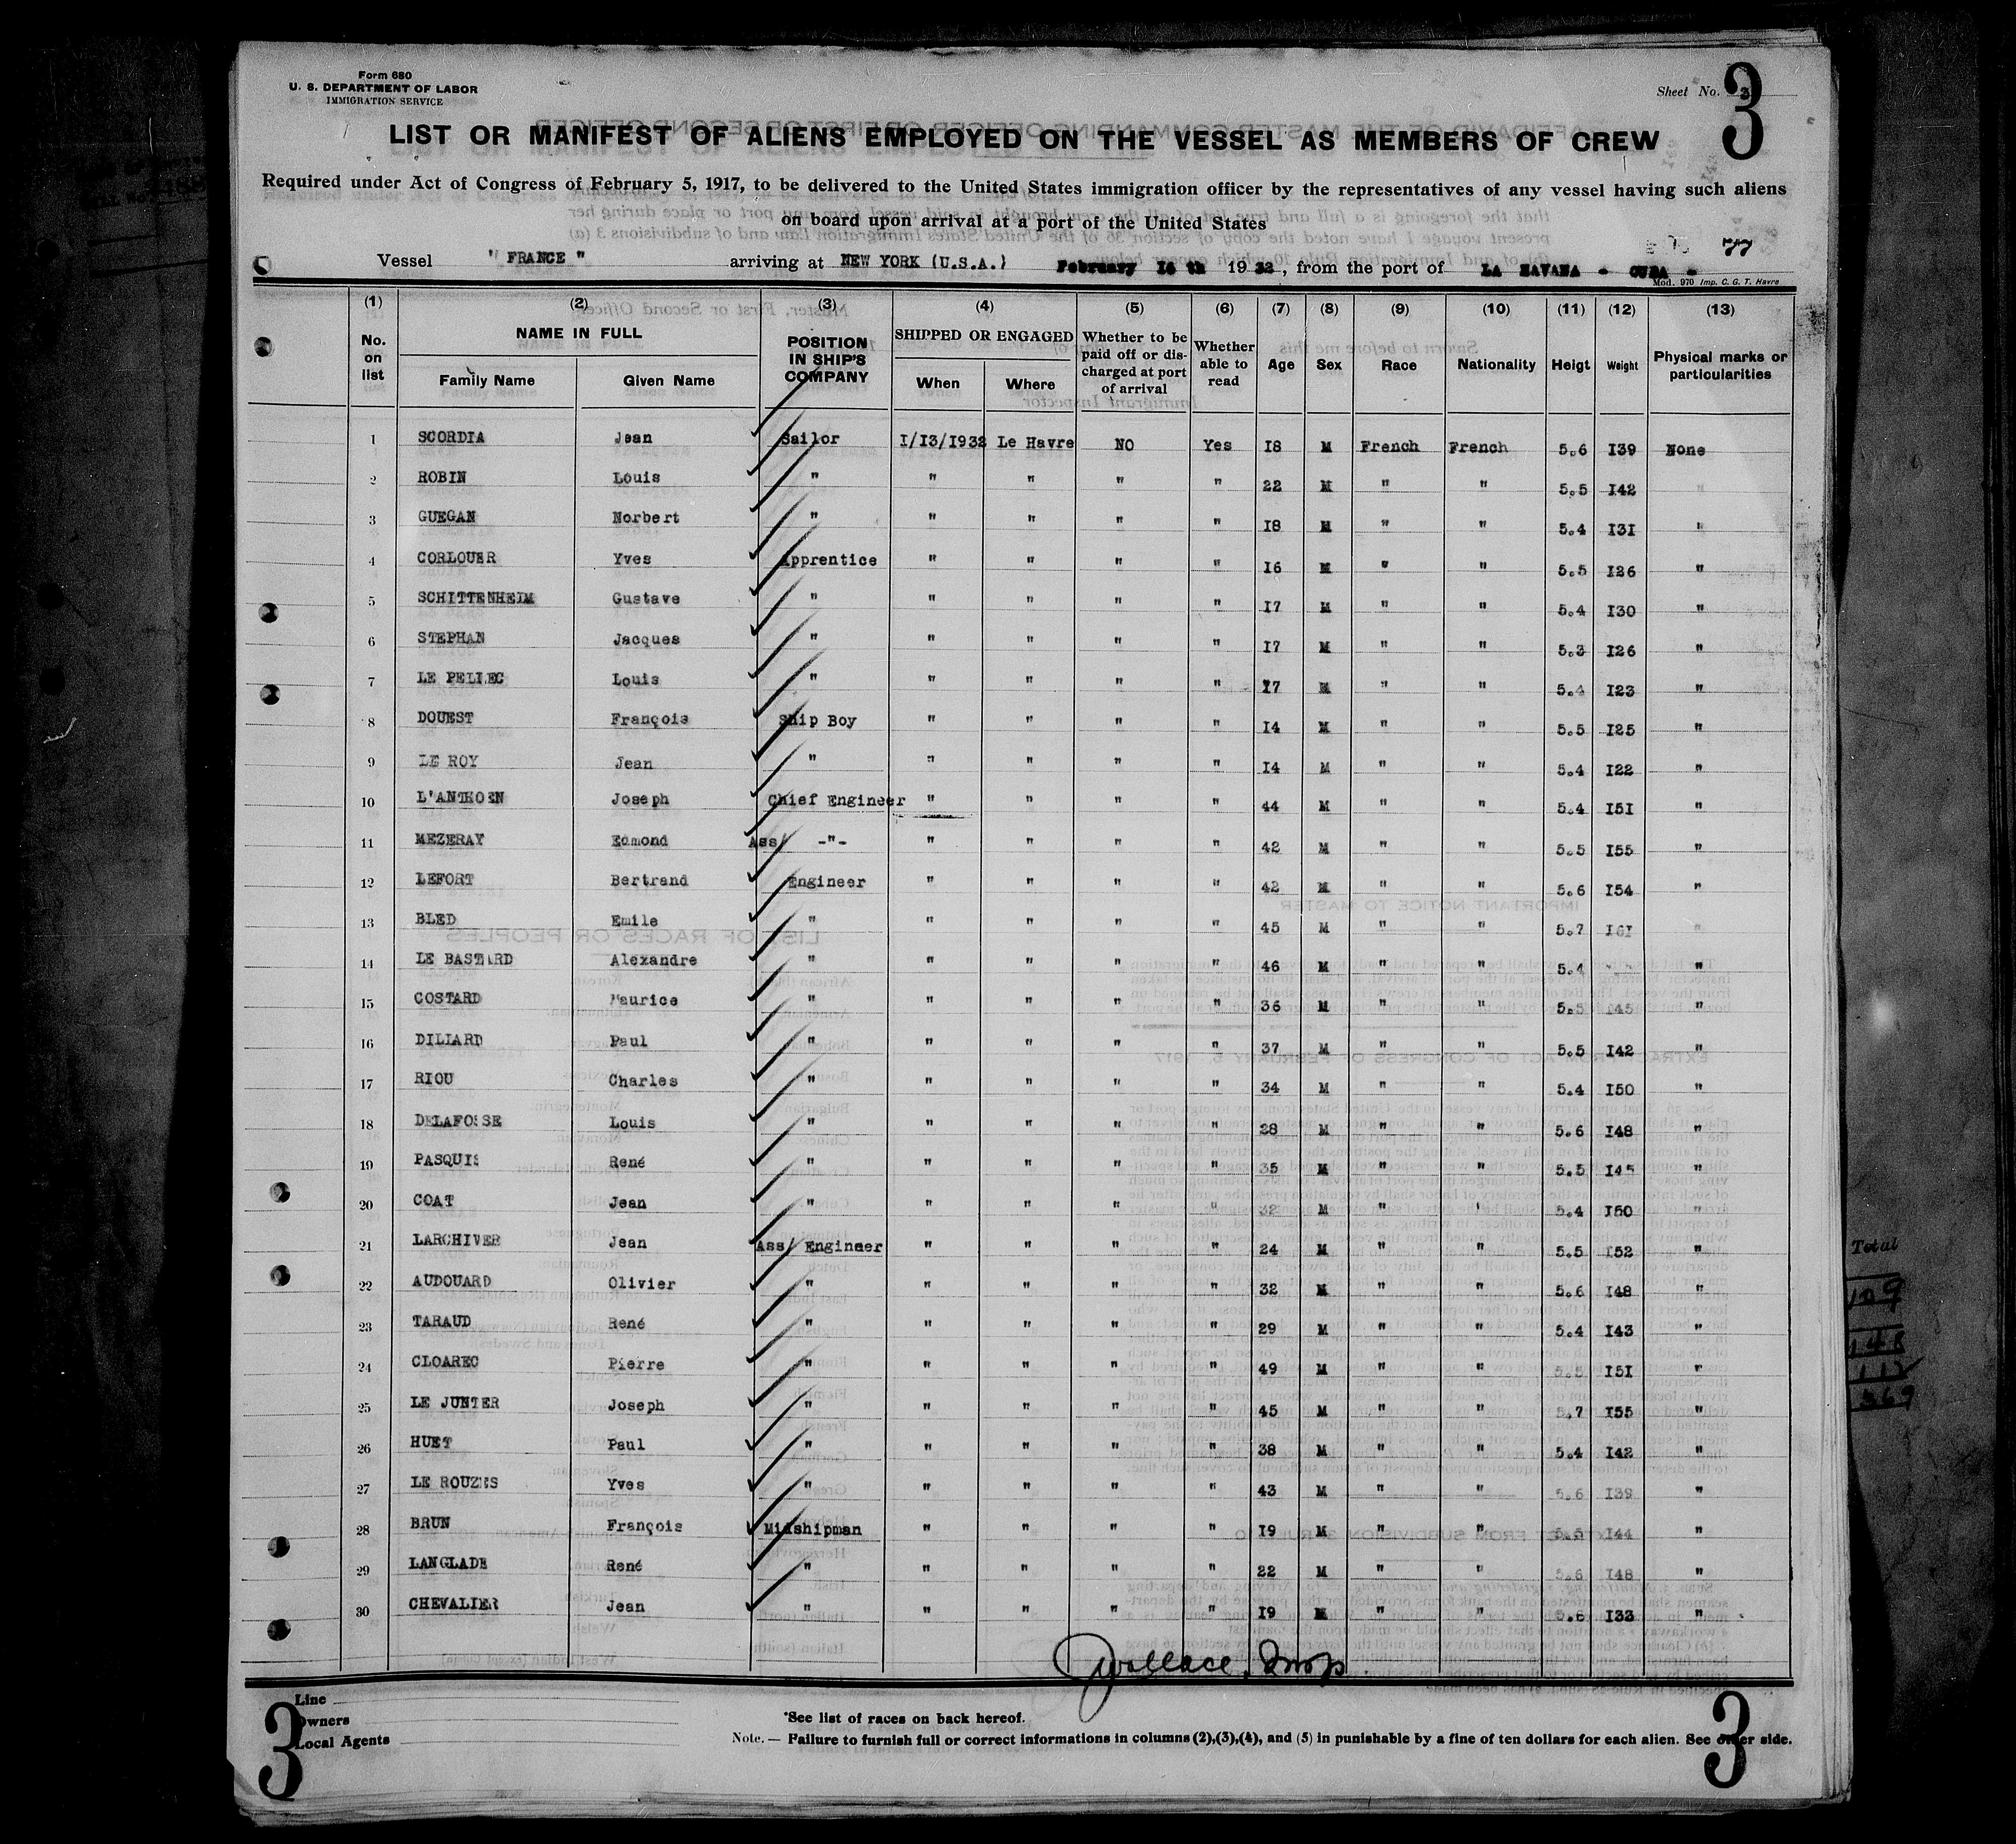 Form 680
U. S. DEPARTMENT OF LABOR
IMMIGRATION SERVICE
Sheet No. 3
3
LIST OR MANIFEST OF ALIENS EMPLOYED ON THE VESSEL AS MEMBERS OF CREW
Required under Act of Congress of February 5, 1917, to be delivered to the United States immigration officer by the representatives of any vessel having such aliens
on board upon arrival at a port of the United States
77
Vessel " FRANCE " arriving at NEW YORK (U.S.A.) February 16 th 1932, from the port of LA HAVANA - CUBA -
Mod. 970 Imp. C. G. T. Havre
(1) (2) (3) (4) (5) (6) (7) (8) (9) (10) (11) (12) (13)
No. on list NAME IN FULL Family Name Given Name POSITION IN SHIP'S COMPANY SHIPPED OR ENGAGED When Where Whether to be paid off or discharged at port of arrival Whether able to read Age Sex Race Nationality Heigt Weight Physical marks or particularities
1 SCORDIA Jean Sailor I/I3/I932 Le Havre NO Yes I8 M French French 5.6 I39 None
2 ROBIN Louis " " " " " 22 M " " 5.5 I42 "
3 GUEGAN Norbert " " " " " I8 M " " 5.4 I3I "
4 CORLOUER Yves Apprentice " " " " I6 M " " 5.5 I26 "
5 SCHITTENHEIM Gustave " " " " " I7 M " " 5.4 I30 "
6 STEPHAN Jacques " " " " " I7 M " " 5.3 I26 "
7 LE PELLEC Louis " " " " " I7 M " " 5.4 I23 "
8 DOUEST François Ship Boy " " " " I4 M " " 5.5 I25 "
9 LE ROY Jean " " " " " I4 M " " 5.4 I22 "
10 L'ANTHOEN Joseph Chief Engineer " " " " 44 M " " 5.4 I5I "
11 MEZERAY Edmond Ass/ -"- " " " " 42 M " " 5.5 I55 "
12 LEFORT Bertrand Engineer " " " " 42 M " " 5.6 I54 "
13 BLED Emile " " " " " 45 M " " 5.7 I6I "
14 LE BASTARD Alexandre " " " " " 46 M " " 5.4 "
15 COSTARD Maurice " " " " " 36 M " " 5.5 I45 "
16 DILLARD Paul " " " " " 37 M " " 5.5 I42 "
17 RIOU Charles " " " " " 34 M " " 5.4 I50 "
18 DELAFOSSE Louis " " " " " 28 M " " 5.6 I48 "
19 PASQUIS René " " " " " 35 M " " 5.5 I45 "
20 COAT Jean " " " " " 32 M " " 5.4 I50 "
21 LARCHIVER Jean Ass/ Engineer " " " " 24 M " " 5.5 I52 "
22 AUDOUARD Olivier " " " " " 32 M " " 5.6 I48 "
23 TARAUD René " " " " " 29 M " " 5.4 I43 "
24 CLOAREC Pierre " " " " " 49 M " " 5.5 I5I "
25 LE JUNTER Joseph " " " " " 45 M " " 5.7 I55 "
26 HUET Paul " " " " " 38 M " " 5.4 I42 "
27 LE ROUZES Yves " " " " " 43 M " " 5.6 I39 "
28 BRUN François Midshipman " " " " I9 M " " 5.5 I44 "
29 LANGLADE René " " " " " 22 M " " 5.6 I48 "
30 CHEVALIER Jean " " " " " I9 M " " 5.6 I33 "
Wallace, Insp.
Line
Owners
Local Agents
*See list of races on back hereof.
Note. — Failure to furnish full or correct informations in columns (2),(3),(4), and (5) in punishable by a fine of ten dollars for each alien. See other side.
3
3
Total
109
148
112
369